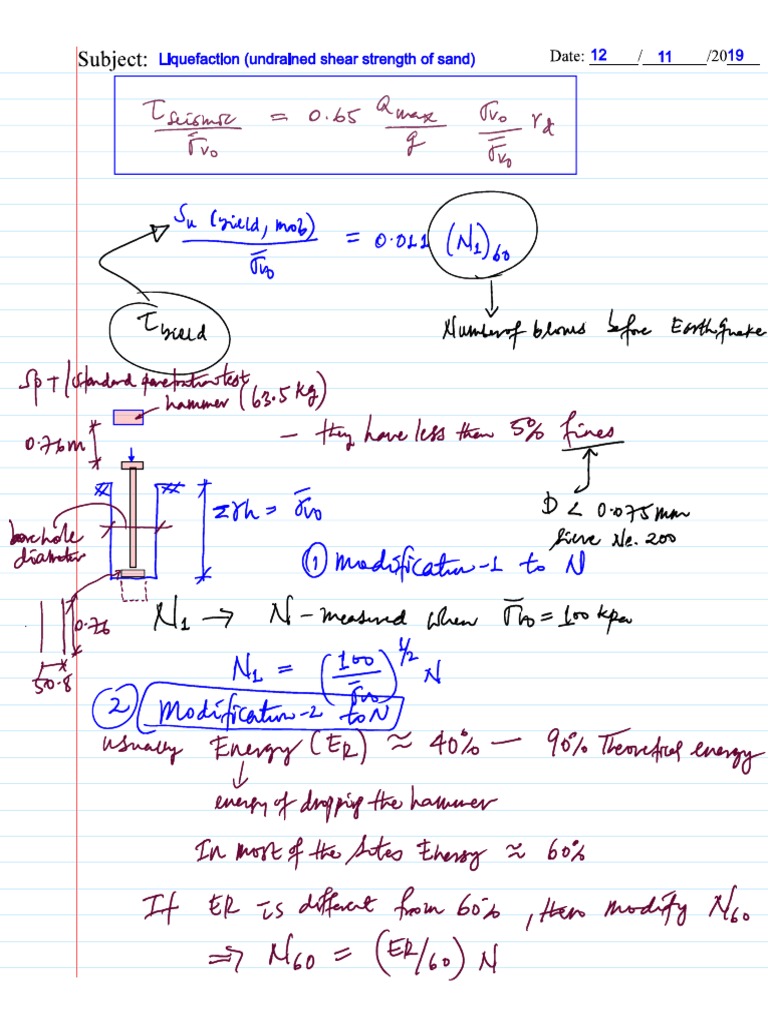 Subject: Liquefaction (undrained shear strength of sand) Date: 12 / 11 /2019
τseismic / σ̄vo = 0.65 amax / g σvo / σ̄vo rd
Su (yield, mob) / σ̄vo = 0.011 (N1)60
τyield
Number of blows before Earthquake
SPT / standard penetration test
hammer (63.5 kg)
0.76m
- they have less then 5% fines
D < 0.075mm
Sieve No. 200
Σγh = σ̄vo
borehole
diameter
① Modification-1 to N
N1 → N - measured when σ̄vo = 100 kpa
0.76
50.8
N1 = (100 / σ̄vo)^1/2 N
② Modification-2 to N
usually Energy (ER) ≈ 40% - 90% Theoretical energy
energy of dropping the hammer
In most of the sites Energy ≈ 60%
If ER is different from 60%, then modify N60
⇒ N60 = (ER/60) N